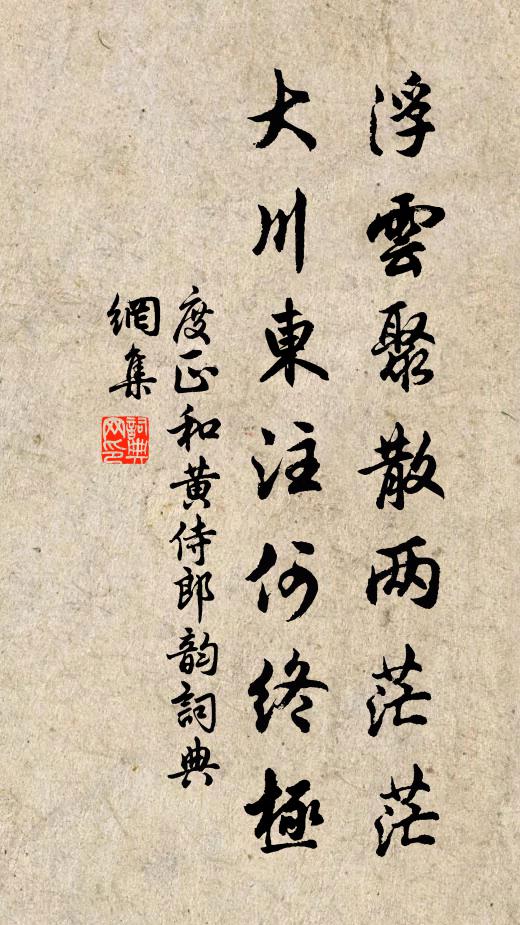 浮雲聚散两茫茫
大川東注何終極
度正和黄侍郎韵詞典
網集
詞典网印